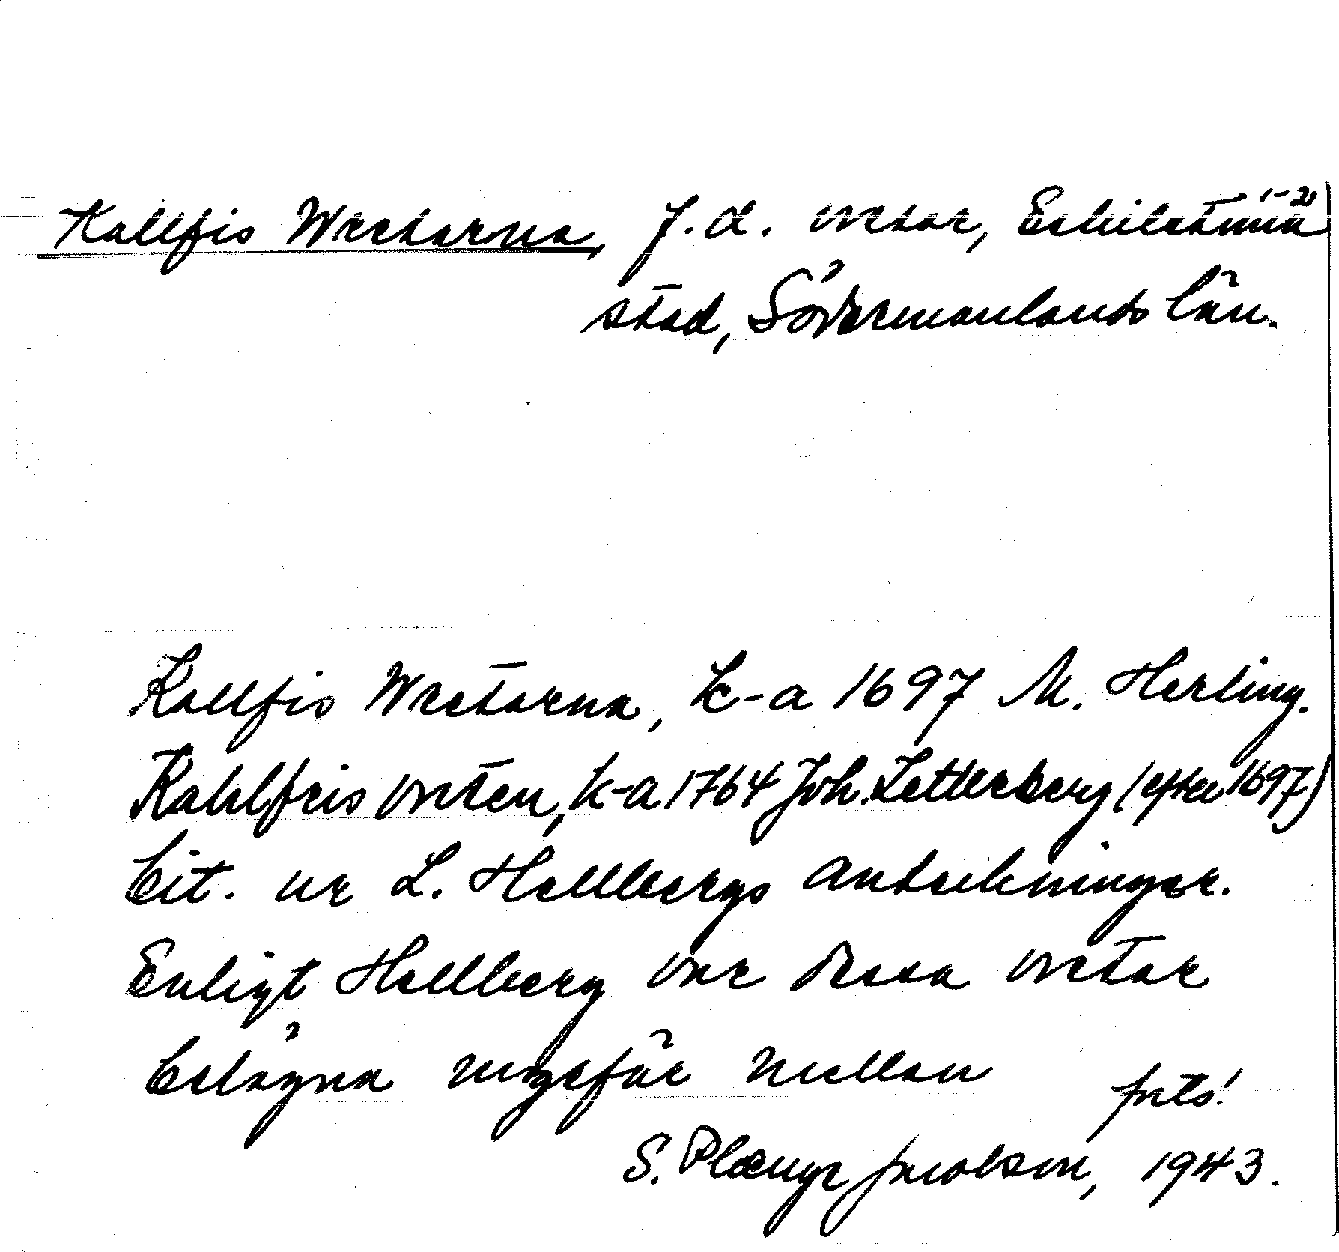 Kallfis Wretarna, f.d. vretar, Eskilstuna 1-2
stad, Södermanlands län.
Kallfis Wretarna, k-a 1697 M. Herling.
Kahlfris vreten, k-a 1764 Joh. Zetterberg (efter 1697)
Cit. ur L. Hellbergs anteckningar.
Enligt Hellberg var dessa vretar
belägna ungefär mellan forts!
S. Plænge Jacobson, 1943.